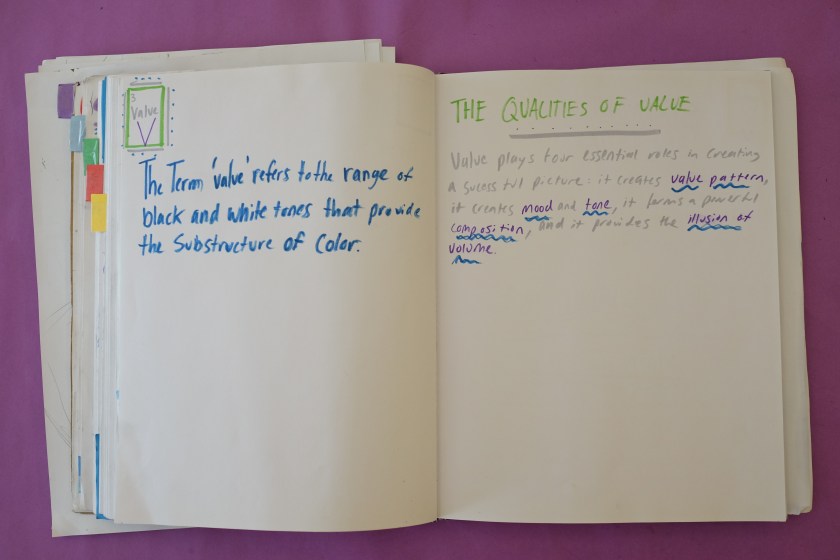 3
Value
The Term 'value' refers to the range of
black and white tones that provide
the Substructure of Color.
THE QUALITIES OF VALUE
Value plays four essential roles in creating
a sucessful picture: it creates value pattern,
it creates mood and tone, it forms a powerful
composition, and it provides the illusion of
volume.